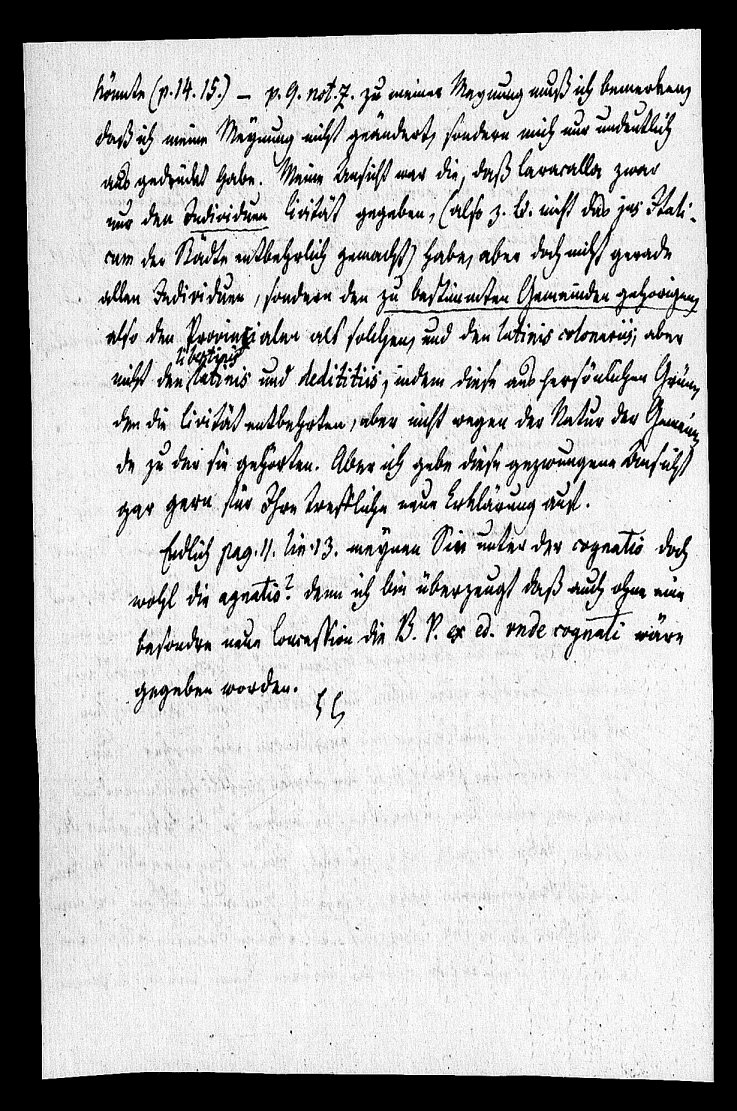 könnte (p. 14. 15.) — p. 9. not. 7. zu meiner Meynung muß ich bemerken,
daß ich meine Meynung nicht geändert, sondern mich nur undeutlich
ausgedrückt habe. Meine Ansicht war die, daß Caracalla zwar
nur den Individuen Civität gegeben, (also z. B. nicht das jus Itali-
cum der Städte entbehrlich gemacht) habe, aber doch nicht gerade
allen Individuen, sondern den zu bestimmten Gemeinden gehörigen,
also den Provinzialen als solchen, und den latinis colonariis, aber
nicht den latinis libertinis und dedititiis, indem diese aus persönlichen Grün-
den die Civität entbehrten, aber nicht wegen der Natur der Gemein-
de zu der sie gehörten. Aber ich gebe diese gezwungene Ansicht
gar gern für Ihre treffliche neue Erklärung auf.
Endlich pag. 11. lin. 13. meynen Sie unter der cognatio doch
wohl die agnatio? denn ich bin überzeugt daß auch ohne eine
besondre neue Concession die B. P. ex ed. unde cognati wäre
gegeben worden.